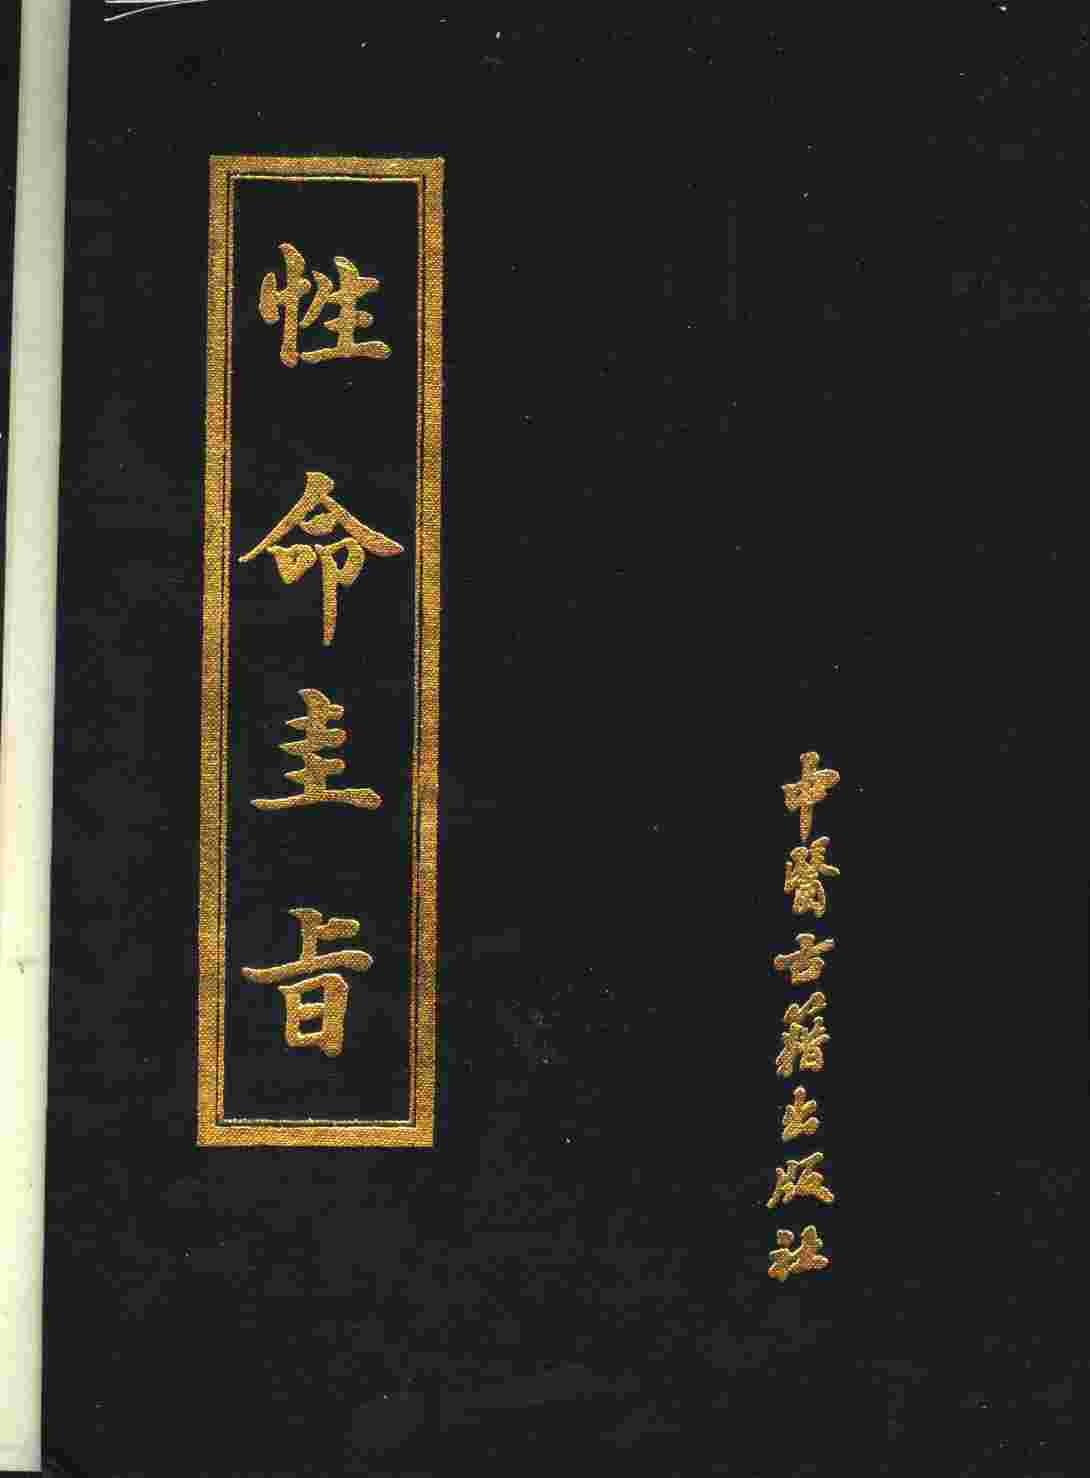 性命圭旨
中醫古籍出版社